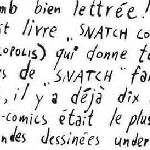 mb bien lettrée!
it livre "SNATCH CO
OPOLIS) qui donne t
s de "SNATCH" fa
, il y a déjà dix
-comics était le plus
ndes dessinées under